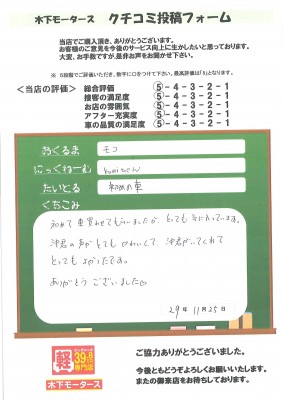 木下モータース　クチコミ投稿フォーム
当店でご購入頂き、ありがとうございます。
お客様のご意見を今後のサービス向上に生かしたいと思っております。
大変、お手数ですが、是非お声をお聞かせ下さい。
※ 5段階でご評価いただき、数字に○をつけて下さい。最高評価は「5」となります。
＜当店の評価＞
総合評価　5－4－3－2－1
接客の満足度　5－4－3－2－1
お店の雰囲気　5－4－3－2－1
アフター充実度　5－4－3－2－1
車の品質の満足度　5－4－3－2－1
おくるま　モコ
にっくねーむ
たいとる　初めの車
くちこみ
初めて車買わせてもらいましたが、とっても気に入っています。
とってもよかったです。
ありがとうございました
29年 11月 25日
軽 39.8万円専門店
木下モータース
ご協力ありがとうございました。
今後ともどうぞよろしくお願いいたします。
またの御来店をお待ちしております。